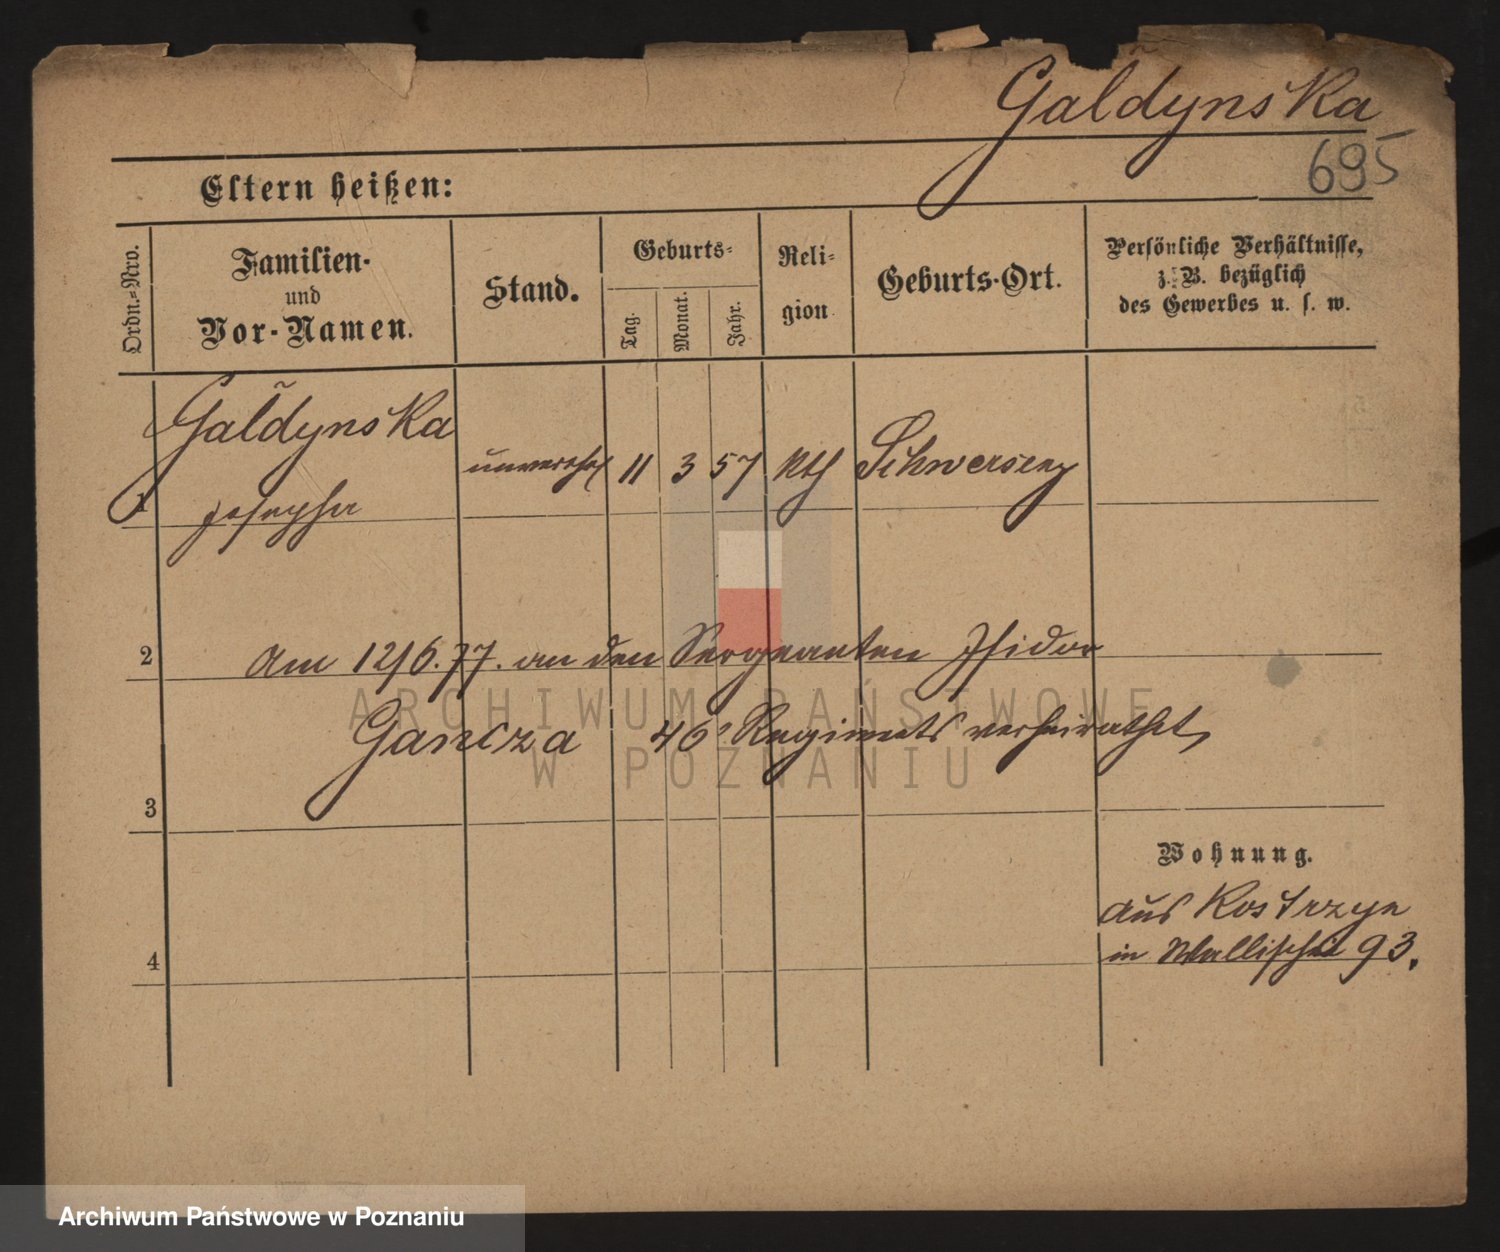 Galdynska
695
Eltern heißen:
Ordn.-Nro.
Familien-
und
Vor-Namen.
Stand.
Geburts-
Tag.
Monat.
Jahr.
Reli-
gion
Geburts-Ort.
Persönliche Verhältnisse,
z. B. bezüglich
des Gewerbes u. s. w.
Galdynska
unvereh 11 3 57 Kth Schwersenz
1 Josepha
2 Am 12/6.77. an den Sergeanten Isidor
Gancza 46 Regiments verheirathet,
3
Wohnung.
aus Kostrzyn
4 in Wallischei 93.
ARCHIWUM PAŃSTWOWE
W POZNANIU
Archiwum Państwowe w Poznaniu